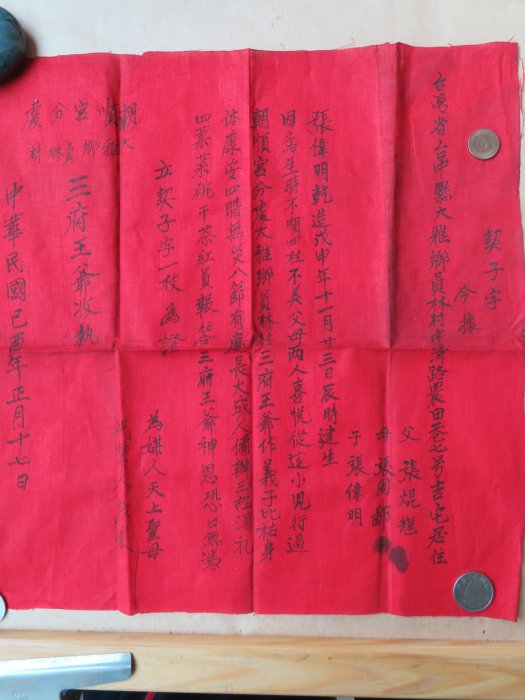 契子字
今據
台灣省台中縣大雅鄉員林村中清路農田巷七号吉宅居住
父 張焜輝
母 張周鄒
子 張偉明
張偉明乾造戊申年十一月廿三日辰時建生
因為生時不順四柱不美父母兩人喜悅從這小児行過
朝順宮分處大雅鄉員林村三府王爺作義子比祐身
体康安四時無災八節有慶長大成人備辦三牲酒礼
四菓菜碗干茶紅員報答三府王爺神恩恐口無憑
立契子字一枚 為證
為媒人天上聖母
朝順宮分處
大雅鄉員林村
三府王爺收執
中華民國己酉年正月十七日